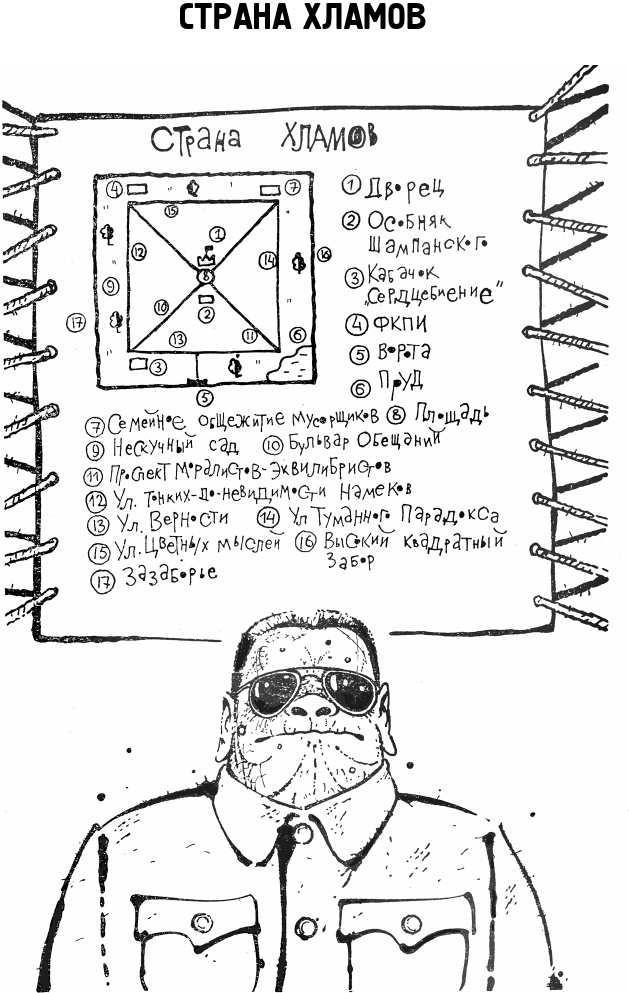 СТРАНА ХЛАМОВ
Страна ХЛАМОВ
4 7
15
1
12 14 16
8
9 2
10
17 13 11 6
3
5
1 Дворец
2 Особняк
Шампанского
3 Кабачок
„Сердцебиение"
4 ФКПИ
5 Ворота
6 Пруд
7 Семейное общежитие мусорщиков 8 Площадь
9 Нескучный сад 10 Бульвар Обещаний
11 Проспект Моралистов-Эквилибристов
12 Ул. Тонких-до-невидимости Намеков
13 Ул. Верности 14 Ул Туманного Парадокса
15 Ул. Цветных мыслей 16 Высокий квадратный
Забор
17 Зазаборье